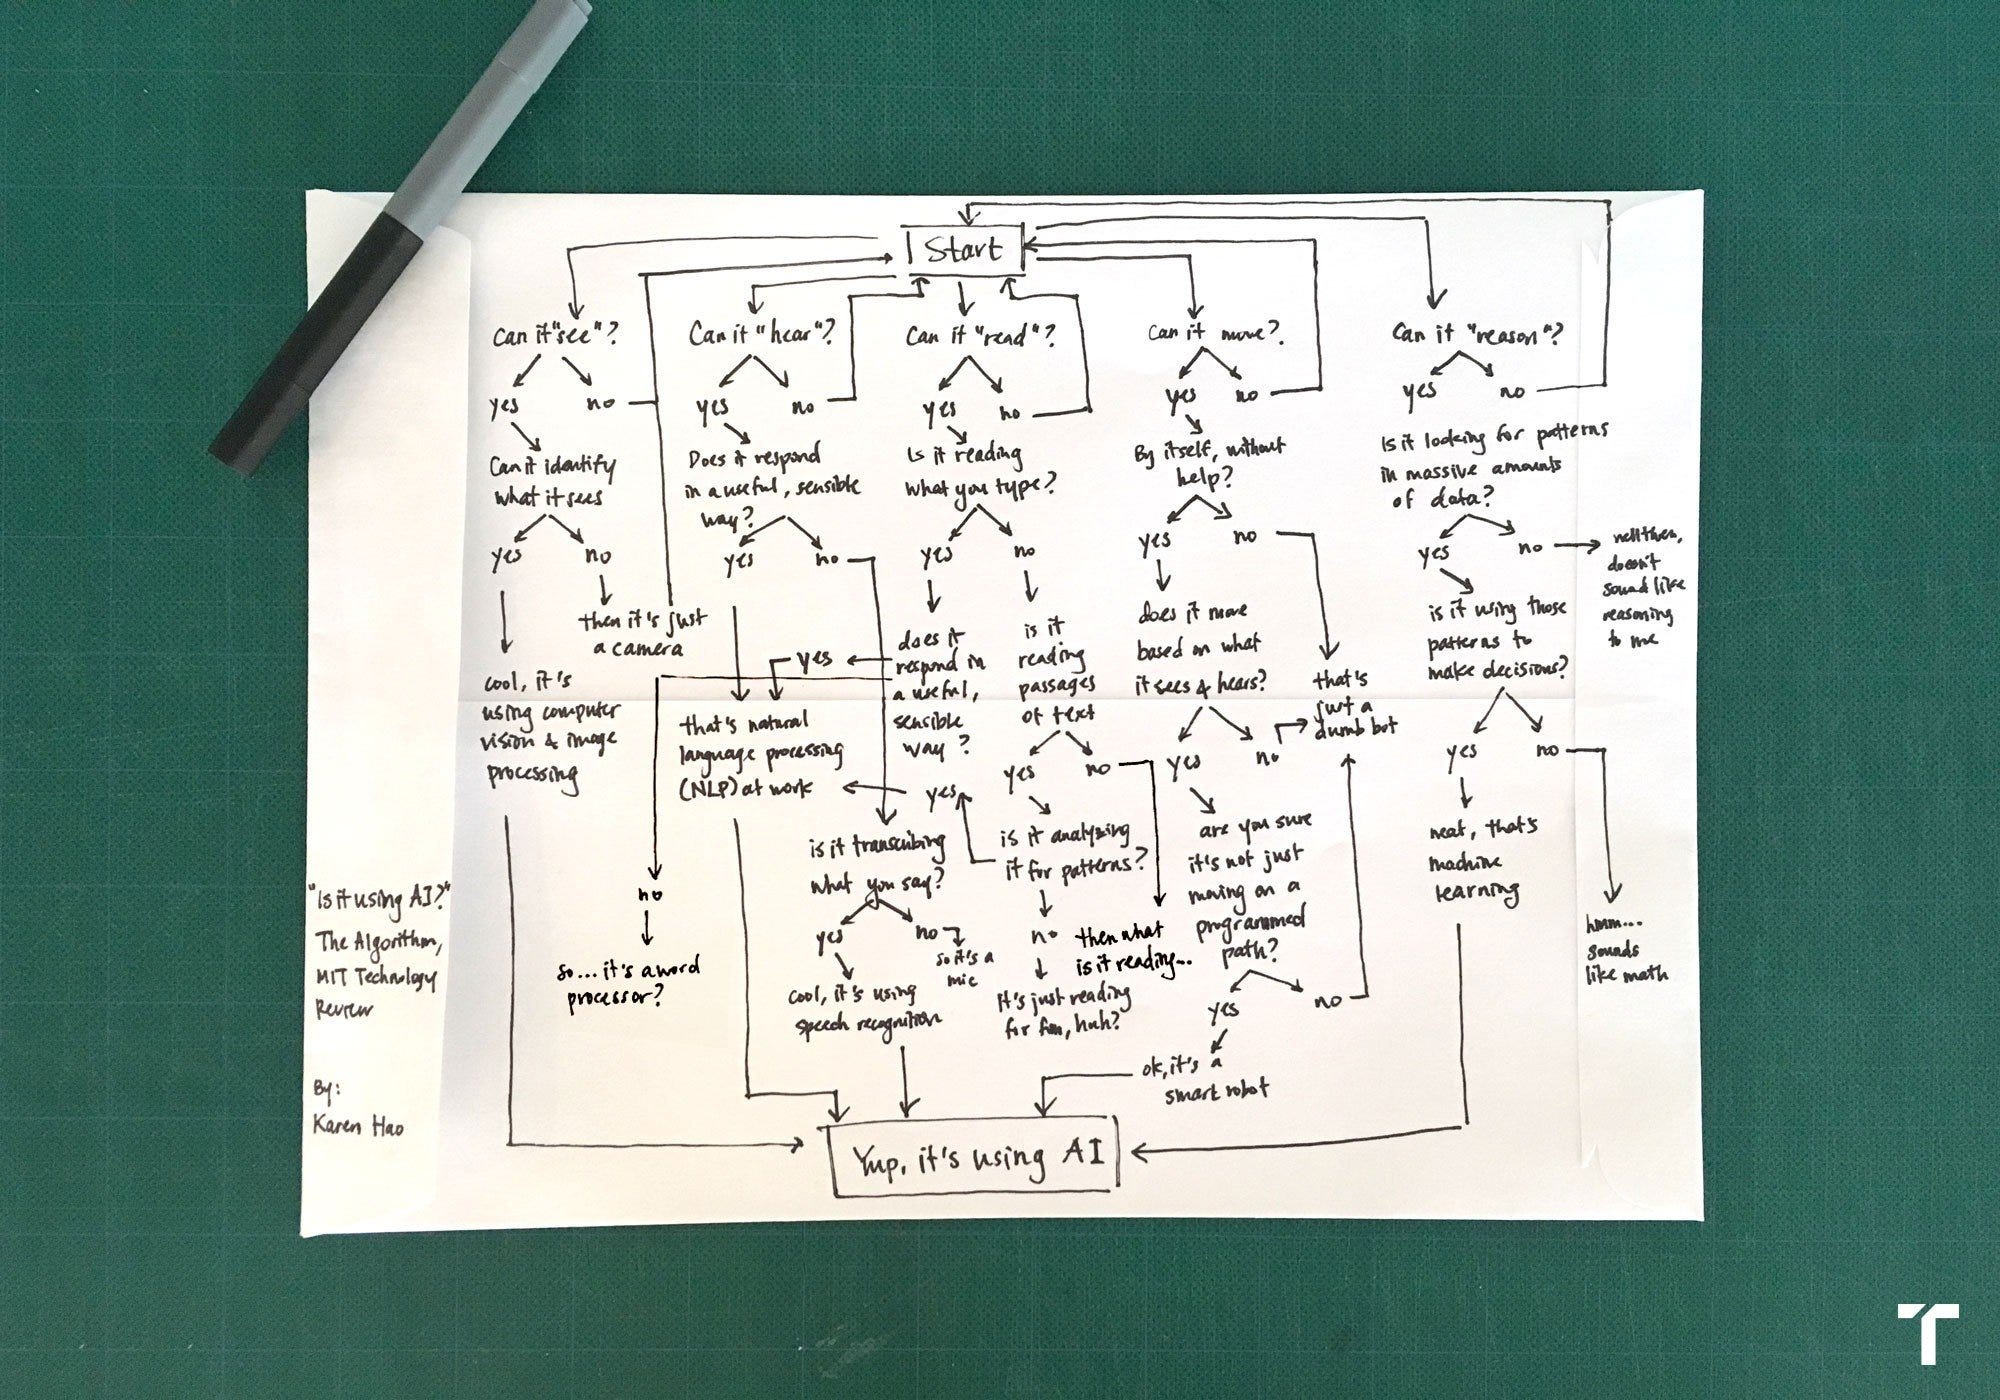 Start
Can it "see"?
yes
no
Can it identify
what it sees
yes
no
then it's just
a camera
cool, it's
using computer
vision & image
processing
Can it "hear"?
yes
no
Does it respond
in a useful, sensible
way?
yes
no
that's natural
language processing
(NLP) at work
is it transcribing
what you say?
yes
no
so it's a
mic
cool, it's using
speech recognition
Can it "read"?
yes
no
Is it reading
what you type?
yes
no
does it
respond in
a useful,
sensible
way?
yes
no
so... it's a word
processor?
is it
reading
passages
of text
yes
no
is it analyzing
it for patterns?
yes
no
It's just reading
for fun, huh?
then what
is it reading...
Can it move?
yes
no
By itself, without
help?
yes
no
does it move
based on what
it sees & hears?
yes
no
that's
just a
dumb bot
are you sure
it's not just
moving on a
programmed
path?
yes
no
ok, it's a
smart robot
Can it "reason"?
yes
no
Is it looking for patterns
in massive amounts
of data?
yes
no
well then,
doesn't
sound like
reasoning
to me
is it using those
patterns to
make decisions?
yes
no
neat, that's
machine
learning
hmm...
sounds
like math
Yup, it's using AI
"Is it using AI?"
The Algorithm,
MIT Technology
Review
By:
Karen Hao
T